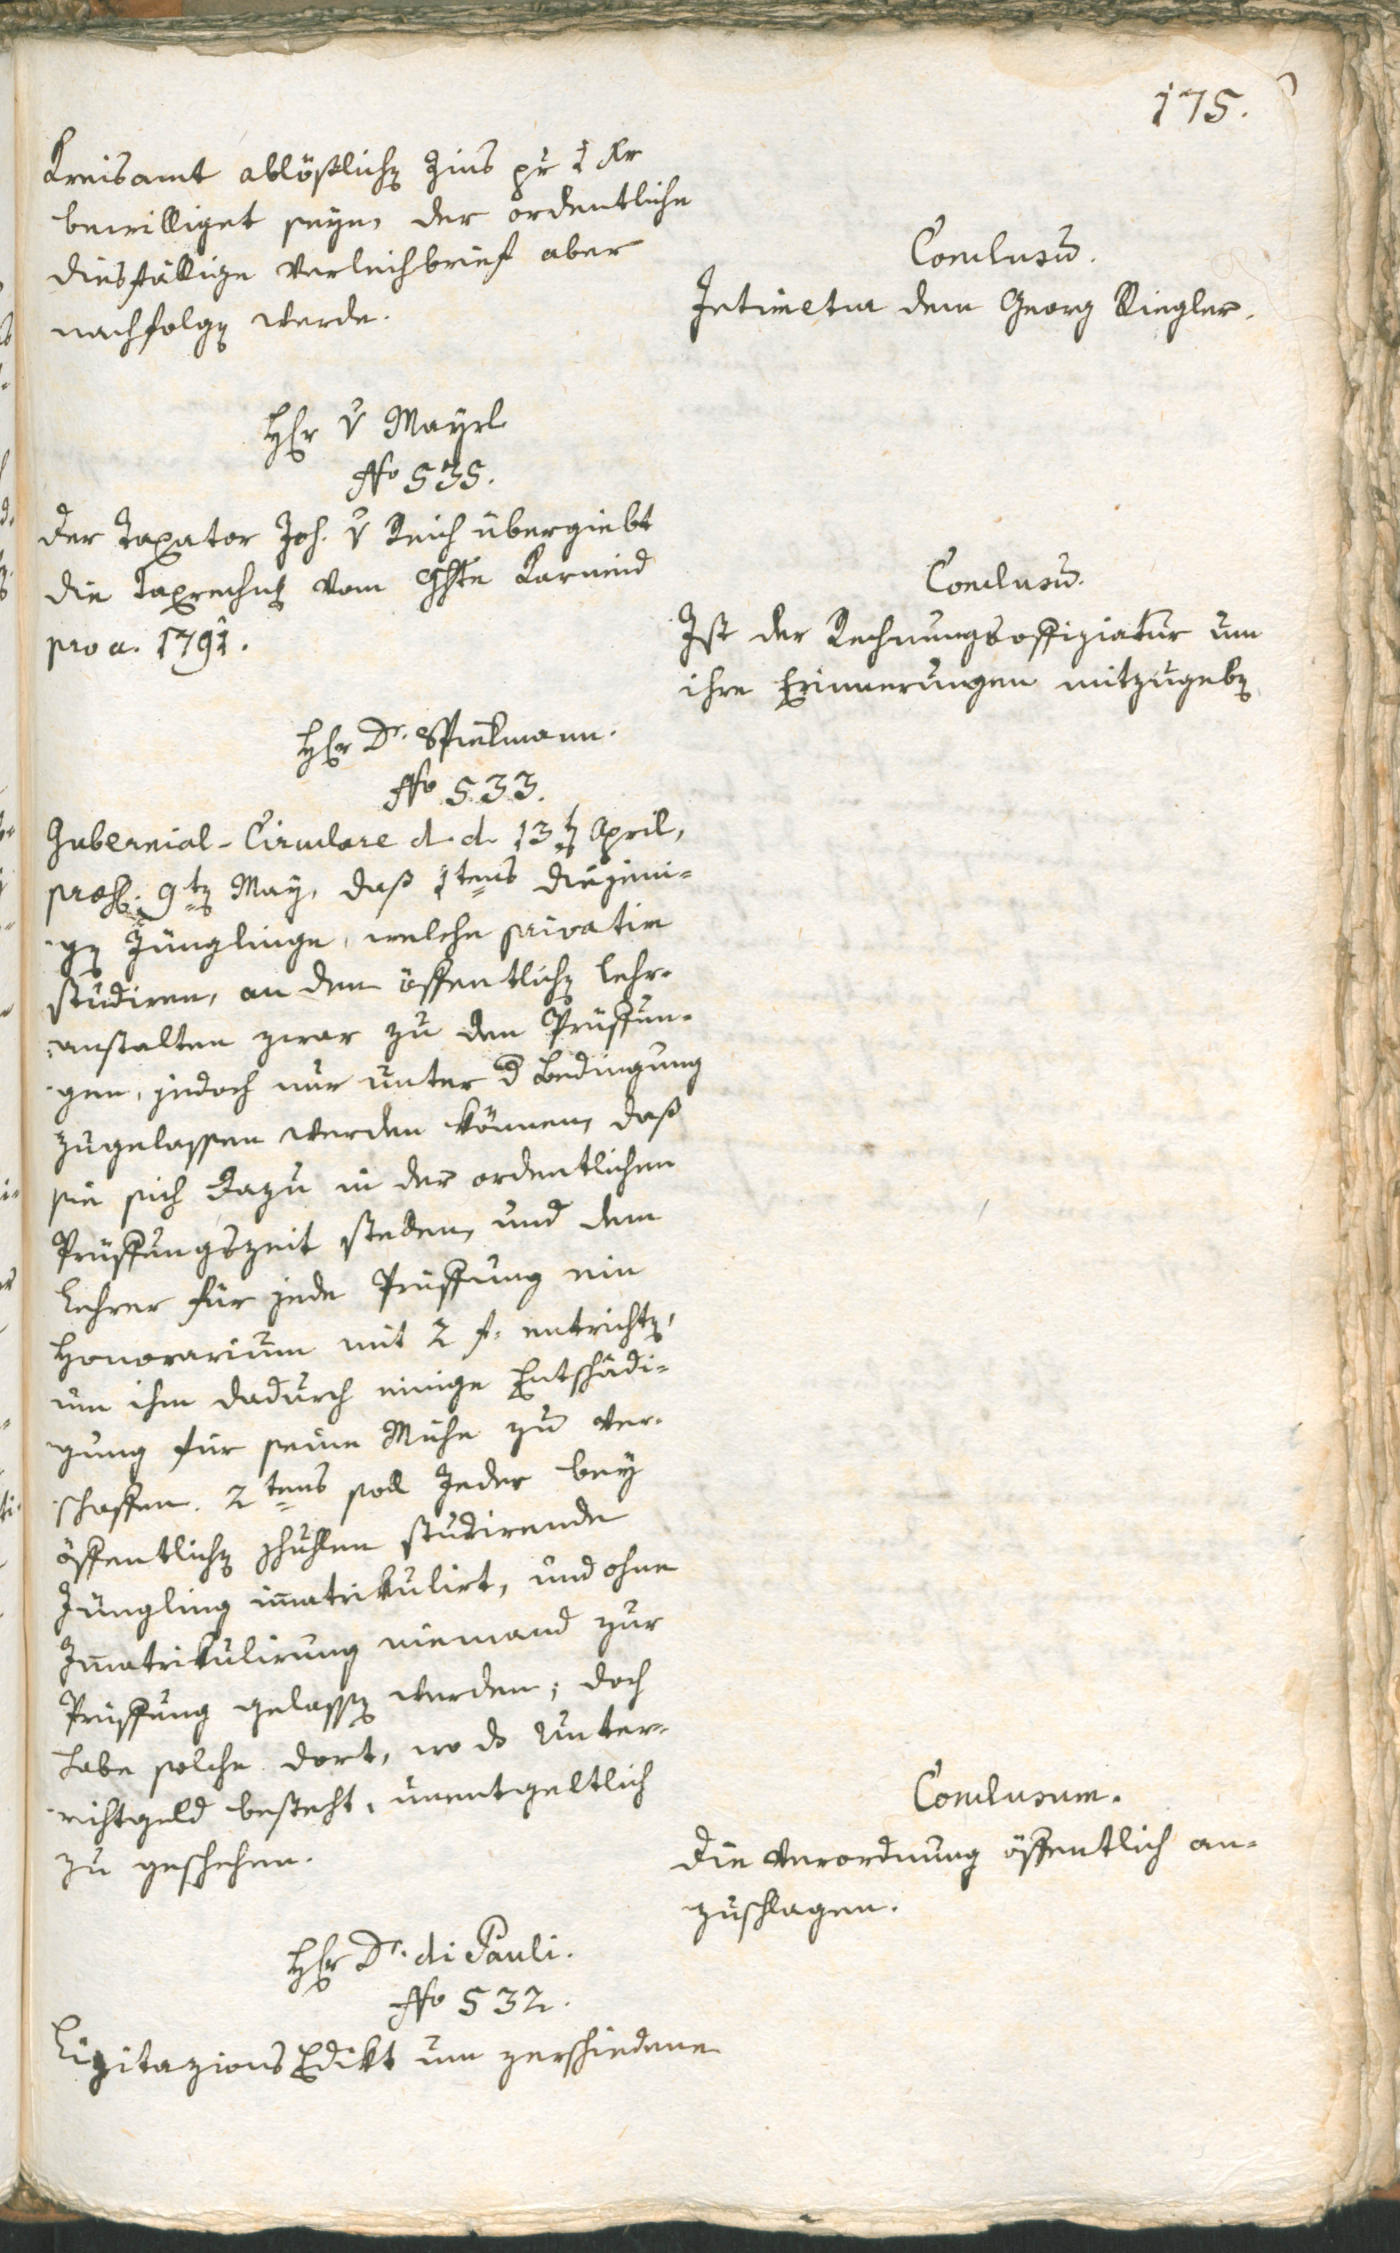 175.
Kreisamt ablößlichen Zins pr 1 Kr
bewilliget seyn, der ordentliche
diesfällige Verleichbrief aber
nachfolgen werde.
Conclusum.
Intimetur dem Georg Riegler.
Hr v Mayrl
No 535.
Der Taxator Joh. v Reich übergiebt
die Taxrechnung vom Ghte Karneid
pro a. 1791.
Conclusum.
Ist der Rechnungsoffiziatur um
ihre Erinnerungen mitzugeben
Hr Dr. Spielmann.
No 533.
Gubernial-Circulare d. d. 13ten April,
praes. 9ten May, daß 1tens diejeni-
gen Jünglinge, welche privatim
studiren, an den öffentlichen Lehr-
anstalten zwar zu den Prüffun-
gen, jedoch nur unter der Bedingung
zugelassen werden können, daß
sie sich dazu in der ordentlichen
Prüffungszeit stellen, und dem
Lehrer für jede Prüffung ein
Honorarium mit 2 f. entrichten,
um ihm dadurch einige Entschädi-
gung für seine Mühe zu ver-
schaffen. 2tens soll Jeder bey
öffentlichen Schullen studirende
Jüngling immatrikulirt, und ohne
Immatrikulirung niemand zur
Prüffung gelassen werden; doch
habe solche dort, wo das Unter-
richtgeld besteht, unentgeltlich
zu geschehen.
Conclusum.
Die Verordnung öffentlich an-
zuschlagen.
Hr Dr. di Pauli.
No 532.
Lizitazions Edikt um zerschiedene